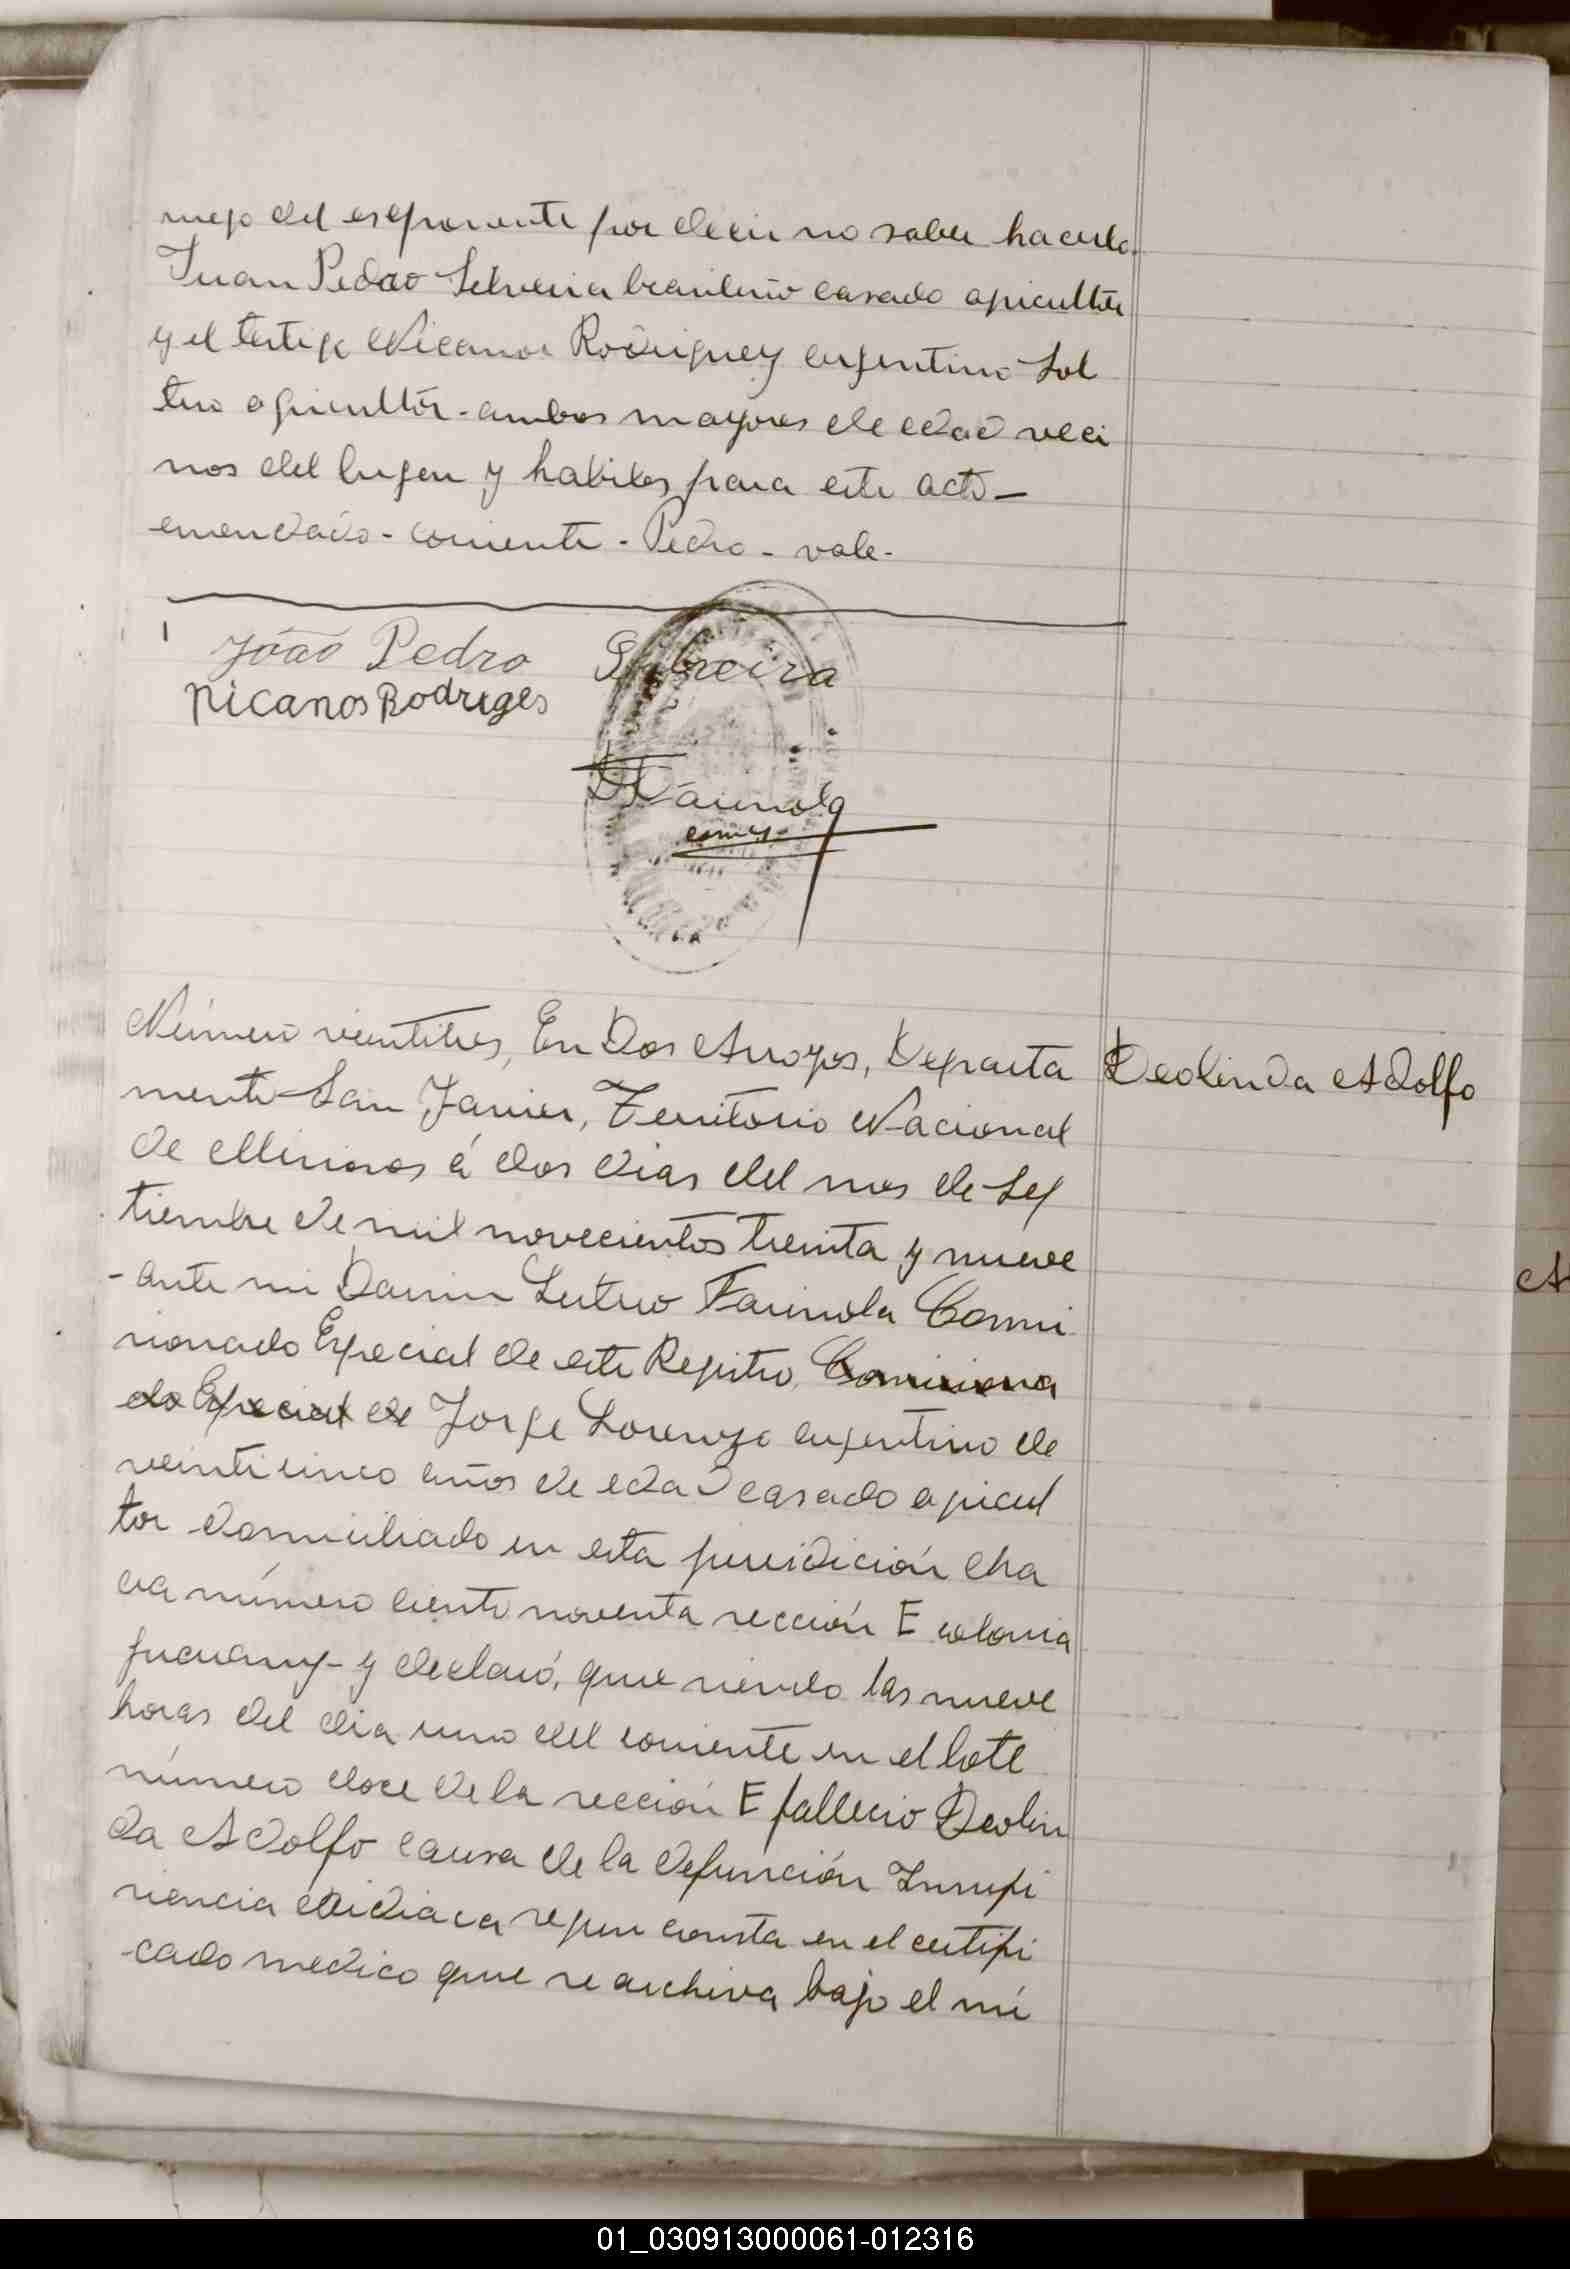 ruego del esponente por decir no saber hacerlo
Juan Pedro Selveira brasilero casado agricultor
y el testigo Nicanor Rodriguez argentino Sol
tero agricultor - ambos mayores de edad veci
nos del lugar y habiles para este acto -
emendado - corriente - Pedro - vale -
João Pedro Silveira
Nicanos Rodriges
D L Farinola
Número veintitres, En Dos Arroyos, Departa
Deolinda Adolfo
mento San Javier, Territorio Nacional
de Misiones á dos dias del mes de Sep
tiembre de mil novecientos treinta y nueve
- ante mi Darwin Lutero Farinola Comi
sionado Especial de este Registro, Comisiona
do Especial de Jorge Lorenzo argentino de
veinticinco años de edad casado agricul
tor domiciliado en esta juridición cha
cra número ciento noventa sección E colonia
y declaró, que siendo las nueve
horas del dia uno del corriente en el lote
número doce de la sección E fallecio Deolin
da Adolfo causa de la defunción Insufi
ciencia cardiaca segun consta en el certifi
cado medico que se archiva bajo el nú
01_030913000061-012316